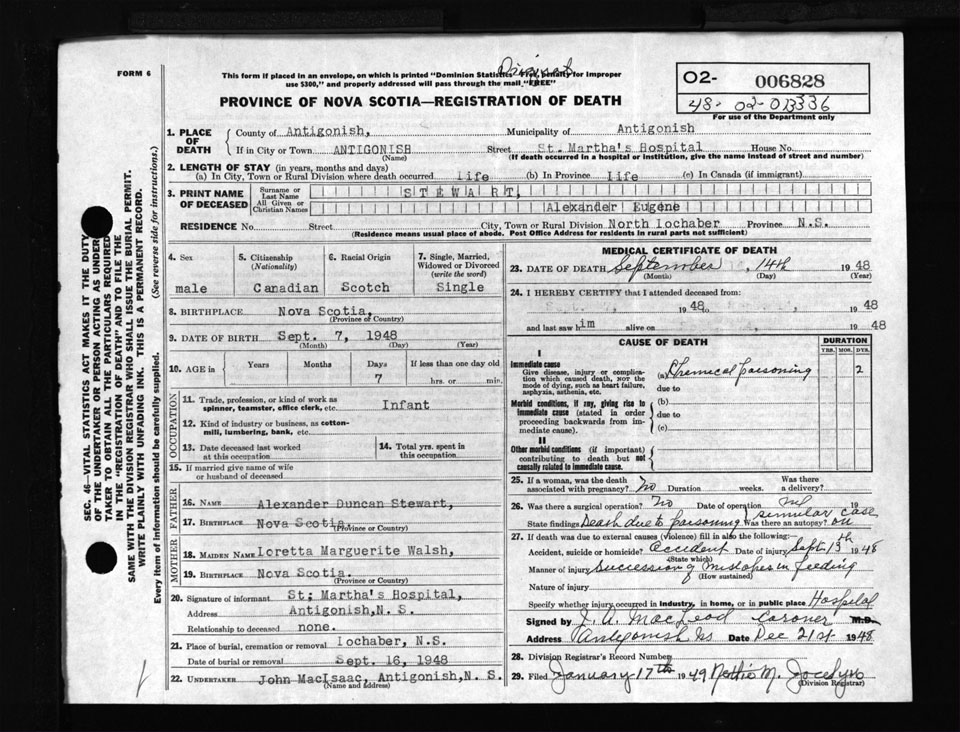 FORM 6
Original
This form if placed in an envelope, on which is printed "Dominion Statistics—Free, penalty for improper
use $300," and properly addressed will pass through the mail "FREE"
02- 006828
48- 02-013336
For use of the Department only
PROVINCE OF NOVA SCOTIA—REGISTRATION OF DEATH
SEC. 46—VITAL STATISTICS ACT MAKES IT THE DUTY
OF THE UNDERTAKER OR PERSON ACTING AS UNDER-
TAKER TO OBTAIN ALL THE PARTICULARS REQUIRED
IN THE "REGISTRATION OF DEATH" AND TO FILE THE
SAME WITH THE DIVISION REGISTRAR WHO SHALL ISSUE THE BURIAL PERMIT.
WRITE PLAINLY WITH UNFADING INK. THIS IS A PERMANENT RECORD.
Every item of information should be carefully supplied. (See reverse side for instructions.)
1. PLACE OF DEATH
County of Antigonish, Municipality of Antigonish
If in City or Town ANTIGONISH Street St. Martha's Hospital House No.
(Name) (If death occurred in a hospital or institution, give the name instead of street and number)
2. LENGTH OF STAY (in years, months and days)
(a) In City, Town or Rural Division where death occurred life (b) In Province life (c) In Canada (if immigrant)
3. PRINT NAME OF DECEASED
Surname or Last Name STEWART,
All Given or Christian Names Alexander Eugene
RESIDENCE No. Street City, Town or Rural Division North Lochaber Province N.S.
(Residence means usual place of abode. Post Office Address for residents in rural parts not sufficient)
4. Sex 5. Citizenship (Nationality) 6. Racial Origin 7. Single, Married, Widowed or Divorced (write the word)
male Canadian Scotch Single
8. BIRTHPLACE Nova Scotia,
(Province or Country)
9. DATE OF BIRTH Sept. 7, 1948
(Month) (Day) (Year)
10. AGE in Years Months Days If less than one day old
7 hrs. or min.
OCCUPATION
11. Trade, profession, or kind of work as
spinner, teamster, office clerk, etc. Infant
12. Kind of industry or business, as cotton-
mill, lumbering, bank, etc.
13. Date deceased last worked
at this occupation
14. Total yrs. spent in
this occupation
15. If married give name of wife
or husband of deceased
FATHER
16. NAME Alexander Duncan Stewart,
17. BIRTHPLACE Nova Scotia,
(Province or Country)
MOTHER
18. MAIDEN NAME Loretta Marguerite Walsh,
19. BIRTHPLACE Nova Scotia.
(Province or Country)
20. Signature of informant St; Martha's Hospital,
Address Antigonish,N. S.
Relationship to deceased none.
21. Place of burial, cremation or removal Lochaber, N.S.
Date of burial or removal Sept. 16, 1948
22. UNDERTAKER John MacIsaac, Antigonish,N. S.
(Name and address)
MEDICAL CERTIFICATE OF DEATH
23. DATE OF DEATH September 14th 1948
(Month) (Day) (Year)
24. I HEREBY CERTIFY that I attended deceased from:
1948 to 1948
and last saw him alive on 1948
CAUSE OF DEATH DURATION
YRS. MOS. DYS.
I
Immediate cause
Give disease, injury or complica-
tion which caused death, NOT the
mode of dying, such as heart failure,
asphyxia, asthenia, etc.
(a) Chemical poisoning 2
due to
Morbid conditions, if any, giving rise to
immediate cause (stated in order
proceeding backwards from im-
mediate cause).
(b)
due to
(c)
II
Other morbid conditions (if important)
contributing to death but not
causally related to immediate cause.
25. If a woman, was the death
associated with pregnancy? No Duration weeks. Was there
a delivery?
26. Was there a surgical operation? No Date of operation nil 19
State findings Death due to poisoning Was there an autopsy? simular case on
27. If death was due to external causes (violence) fill in also the following:
Accident, suicide or homicide? Accident Date of injury Sept. 13th 1948
(State which)
Manner of injury Succession of mistakes in feeding
(How sustained)
Nature of injury
Specify whether injury occurred in industry, in home, or in public place Hospital
Signed by J. A. MacLeod Coroner M.D.
Address Antigonish NS Date Dec 21st 1948
28. Division Registrar's Record Number
29. Filed January 17th 1949 M.
(Division Registrar)